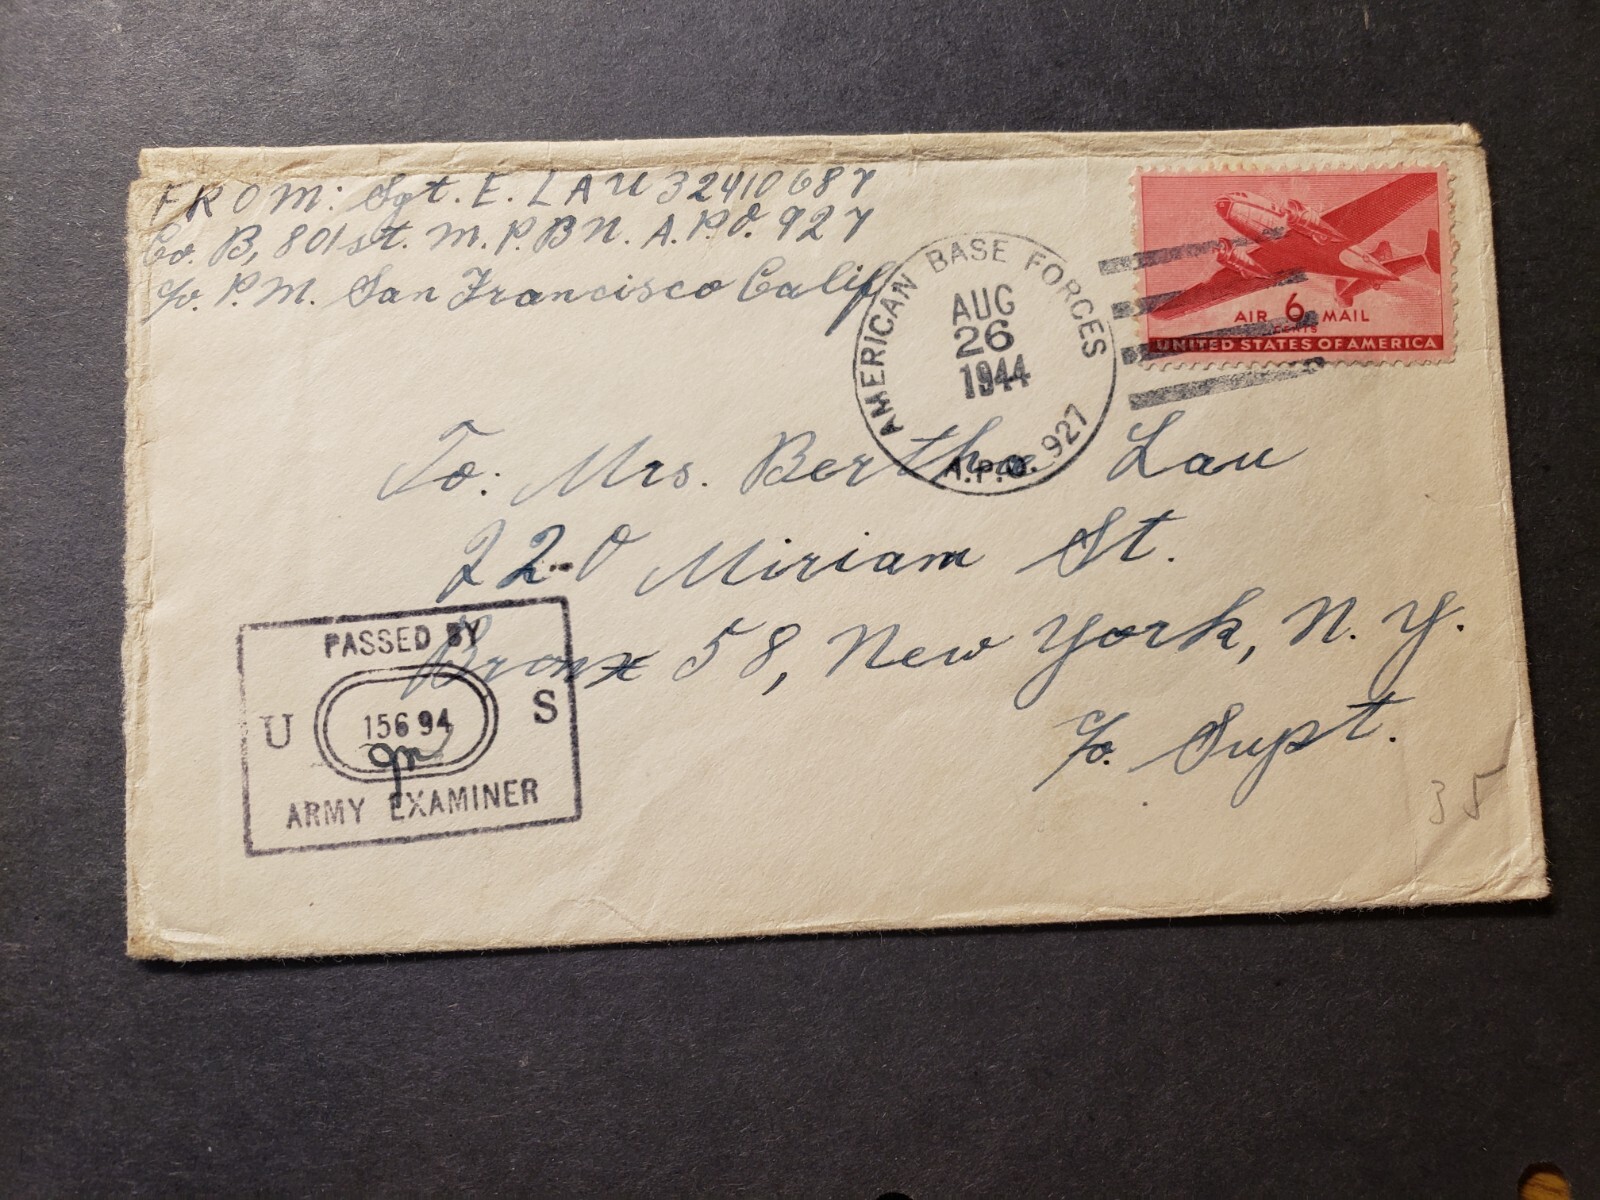 FROM: Sgt. E. LAU 32410687
Co. B, 801st. M.P.BN. A.P.O. 927
c/o. P.M. San Francisco Calif
AMERICAN BASE FORCES
AUG
26
1944
A.P.O. 927
AIR 6 MAIL
CENTS
UNITED STATES OF AMERICA
To: Mrs. Bertha Lau
220 Miriam St.
Bronx 58, New York, N. Y.
c/o. Supt.
PASSED BY
U 15694 S
ARMY EXAMINER
35